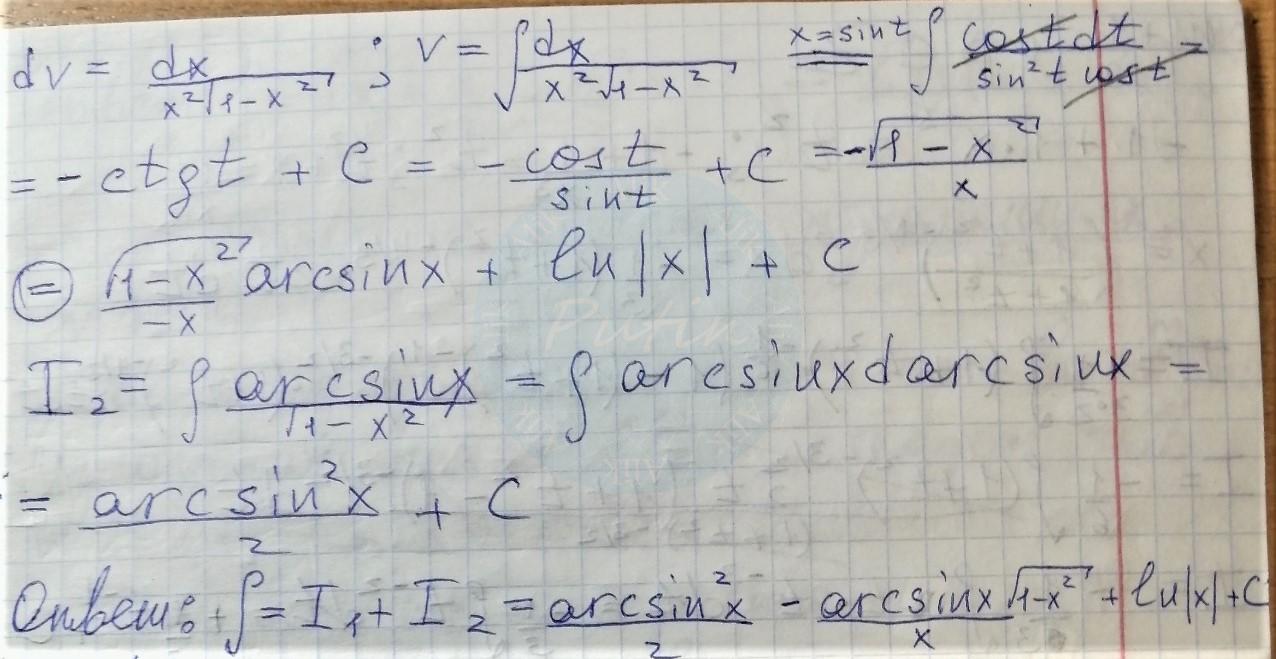 dv = dx / x²√(1-x²) ; v = ∫ dx / x²√(1-x²) x=sint ∫ cost dt / sin²t cost =
= -ctgt + C = - cost / sint + C = -√(1-x²) / x
⊜ √(1-x²) / -x arcsinx + ln|x| + C
I₂ = ∫ arcsinx / √(1-x²) = ∫ arcsinx d arcsinx =
= arcsin²x / 2 + C
Ответ: ∫ = I₁ + I₂ = arcsin²x / 2 - arcsinx √(1-x²) / x + ln|x| + C
Putin